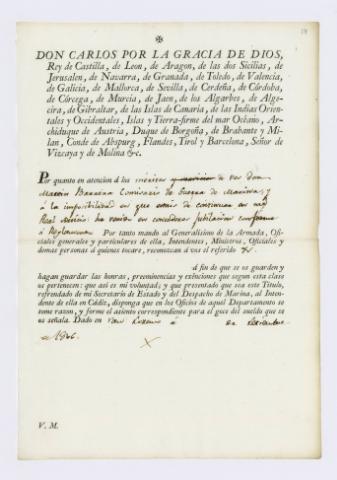 ✠
DON CARLOS POR LA GRACIA DE DIOS,
Rey de Castilla, de Leon, de Aragon, de las dos Sicilias, de
Jerusalen, de Navarra, de Granada, de Toledo, de Valencia,
de Galicia, de Mallorca, de Sevilla, de Cerdeña, de Córdoba,
de Córcega, de Murcia, de Jaen, de los Algarbes, de Alge-
cira, de Gibraltar, de las Islas de Canaria, de las Indias Orien-
tales y Occidentales, Islas y Tierra-firme del mar Océano, Ar-
chiduque de Austria, Duque de Borgoña, de Brabante y Mi-
lan, Conde de Abspurg, Flandes, Tirol y Barcelona, Señor de
Vizcaya y de Molina &c.
Por quanto en atencion á los de vos Don
Martin Comisario de Guerra de Marina, y
á la imposibilidad en que estais de continuar en mi
Real servicio: he venido en concederos Jubilacion conforme
á Reglamento. Por tanto mando al Generalísimo de la Armada, Ofi-
ciales generales y particulares de ella, Intendentes, Ministros, Oficiales y
demas personas á quienes tocare, reconozcan á vos el referido
á fin de que se os guarden y
hagan guardar las honras, preeminencias y exênciones que segun esta clase
os pertenecen: que así es mi voluntad; y que presentado que sea este Título,
refrendado de mi Secretario de Estado y del Despacho de Marina, al Inten-
dente de ella en Cádiz, disponga que en los Oficios de aquel Departamento se
tome razon, y forme el asiento correspondiente para el goce del sueldo que se
os señala. Dado en San Lorenzo á de
V. M.